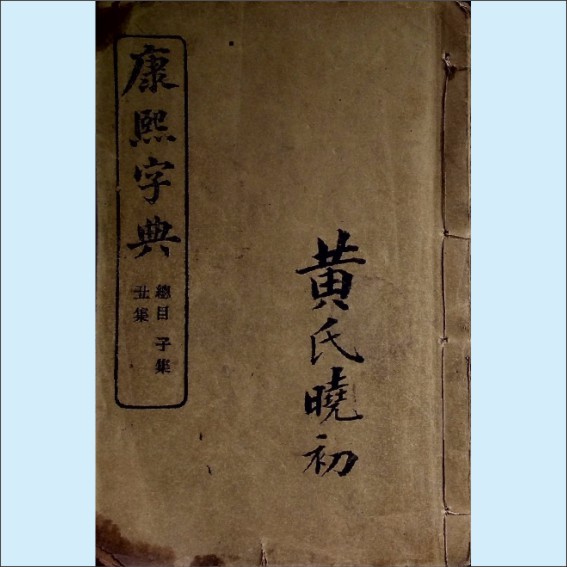 康熙字典
總目 子集
丑集
黄氏曉初